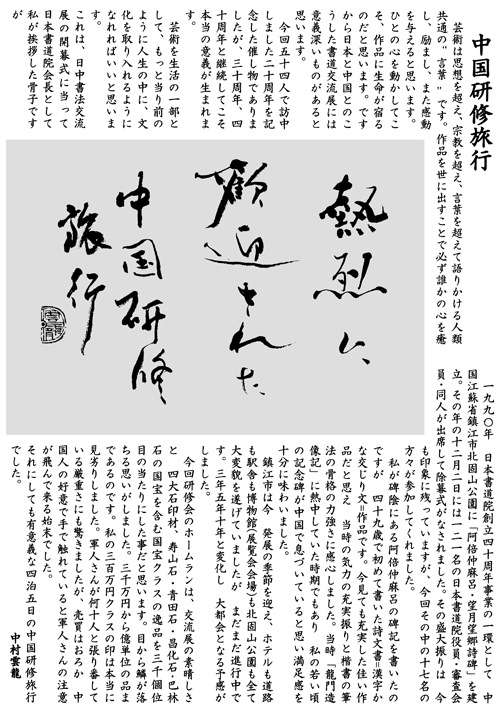 中国研修旅行
芸術は思想を超え、宗教を超え、言葉を超えて語りかける人類
共通の〝言葉〟です。作品を世に出すことで必ず誰かの心を癒
し、励まし、また感動
を与えると思います。
ひとの心を動かしてこ
そ、作品に生命が宿る
のだと思います。です
から日本と中国とのこ
うした書道交流展には
意義深いものがあると
思います。
今回五十四人で訪中
しました二十周年を記
念した催し物でありま
したが、三十周年、四
十周年と継続してこそ
本当の意義が生まれま
す。
芸術を生活の一部と
して、もっと当り前の
ように人生の中に、文
化を取り入れるように
なれればいいと思いま
す。
これは、日中書法交流
展の開幕式に当って
日本書道院会長として
私が挨拶した骨子です
が
熱烈に
歓迎された
中国研修
旅行
一九九〇年 日本書道院創立四十周年事業の一環として 中
国江蘇省鎮江市北固山公園に「阿倍仲麻呂・望月望郷詩碑」を建
立。その年の十二月二日には一二一名の日本書道院役員・審査会
員・同人が出席して除幕式がなされました。その盛大振りは 今
も印象に残っていますが、今回その中の十七名の
方々が参加してくれました。
私が碑陰にある阿倍仲麻呂の碑記を書いたの
ですが 四十九歳で初めて書いた詩文書＝漢字か
な交じり文＝作品です。今見ても充実した佳い作
品だと思え 当時の気力の充実振りと楷書の筆
法の骨格の力強さに感心しました。当時「龍門造
像記」に熱中していた時期でもあり 私の若い頃
の記念碑が中国で息づいていると思い満足感を
十分に味わいました。
鎮江市は今 発展の季節を迎え、ホテルも道路
も駅舎も博物館（展覧会会場）も北固山公園も全て
大変貌を遂げていましたが まだまだ進行中で
す。三年五年十年と変化し 大都会となる予感が
しました。
今回研修会のホームランは、交流展の素晴しさ
と 四大石印材、寿山石・青田石・昌化石・巴林
石の国宝を含む国宝クラスの逸品を三千個位
目の当たりにした事だと思います。目から鱗が落
ちる思いがしました。三千万円から億単位の品ま
であるのです。私の三百万円クラスの印は本当に
見劣りしました。軍人さんが何十人と張り番して
いる厳重さにも驚きましたが、売買はおろか 中
国人の好意で手で触れていると軍人さんの注意
が飛んで来る始末でした。
それにしても有意義な四泊五日の中国研修旅行
でした。
中村雲龍